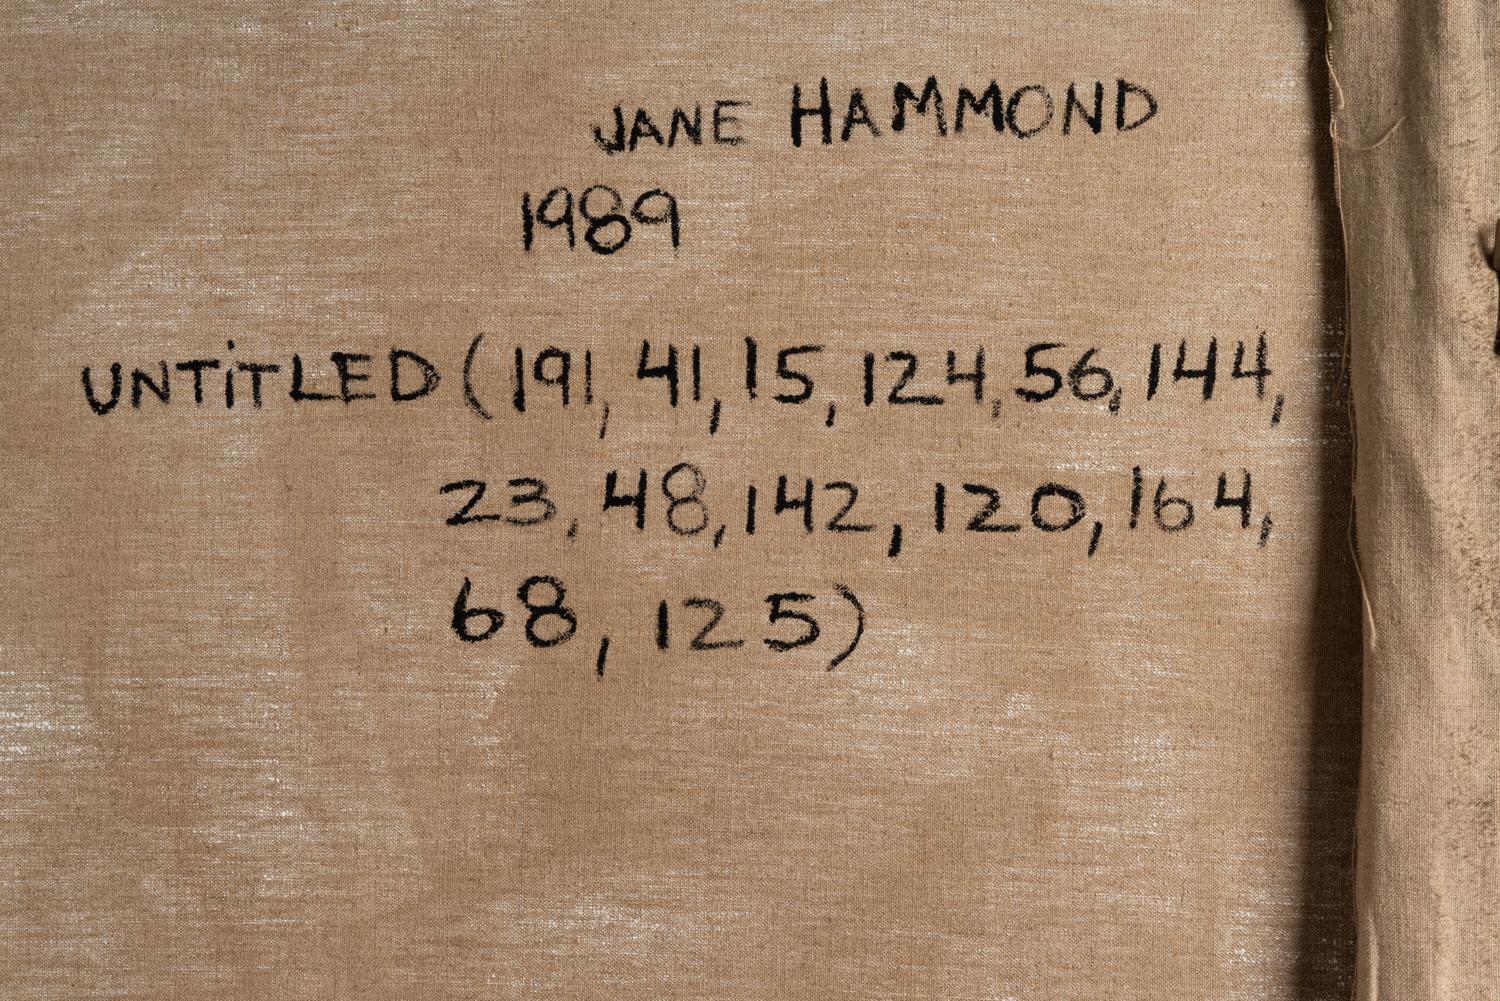 JANE HAMMOND
1989
UNTiTLED (191, 41, 15, 124, 56, 144,
23, 48, 142, 120, 164,
68, 125)